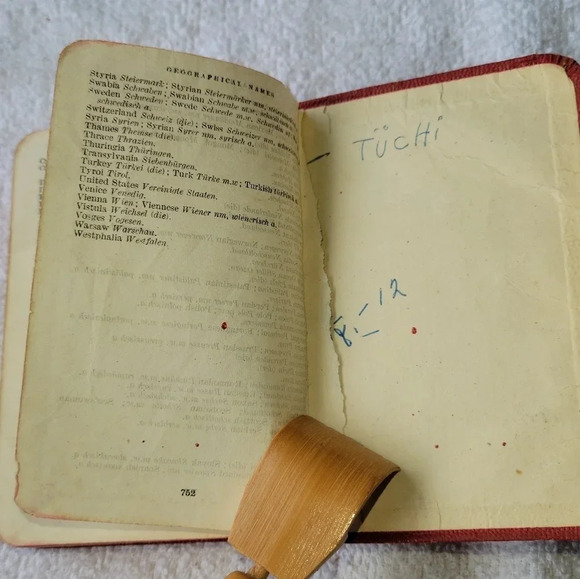 GEOGRAPHICAL NAMES
Styria Steiermark; Styrian Steiermärker nm,
Swabia Schwaben; Swabian Schwabe m.w,
Sweden Schweden; Swede Schwede m.w,
schwedisch a.
Switzerland Schweiz (die); Swiss Schweizer nm,
Syria Syrien; Syrian Syrer nm, syrisch a.
Thames Themse (die).
Thrace Thrazien.
Thuringia Thüringen.
Transylvania Siebenbürgen.
Turkey Türkei (die); Turk Türke m.w; Turkish türkisch a.
Tyrol Tirol.
United States Vereinigte Staaten.
Venice Venedig.
Vienna Wien; Viennese Wiener nm, wienerisch a.
Vistula Weichsel (die).
Vosges Vogesen.
Warsaw Warschau.
Westphalia Westfalen.
752
TÜCHI
8.– 12